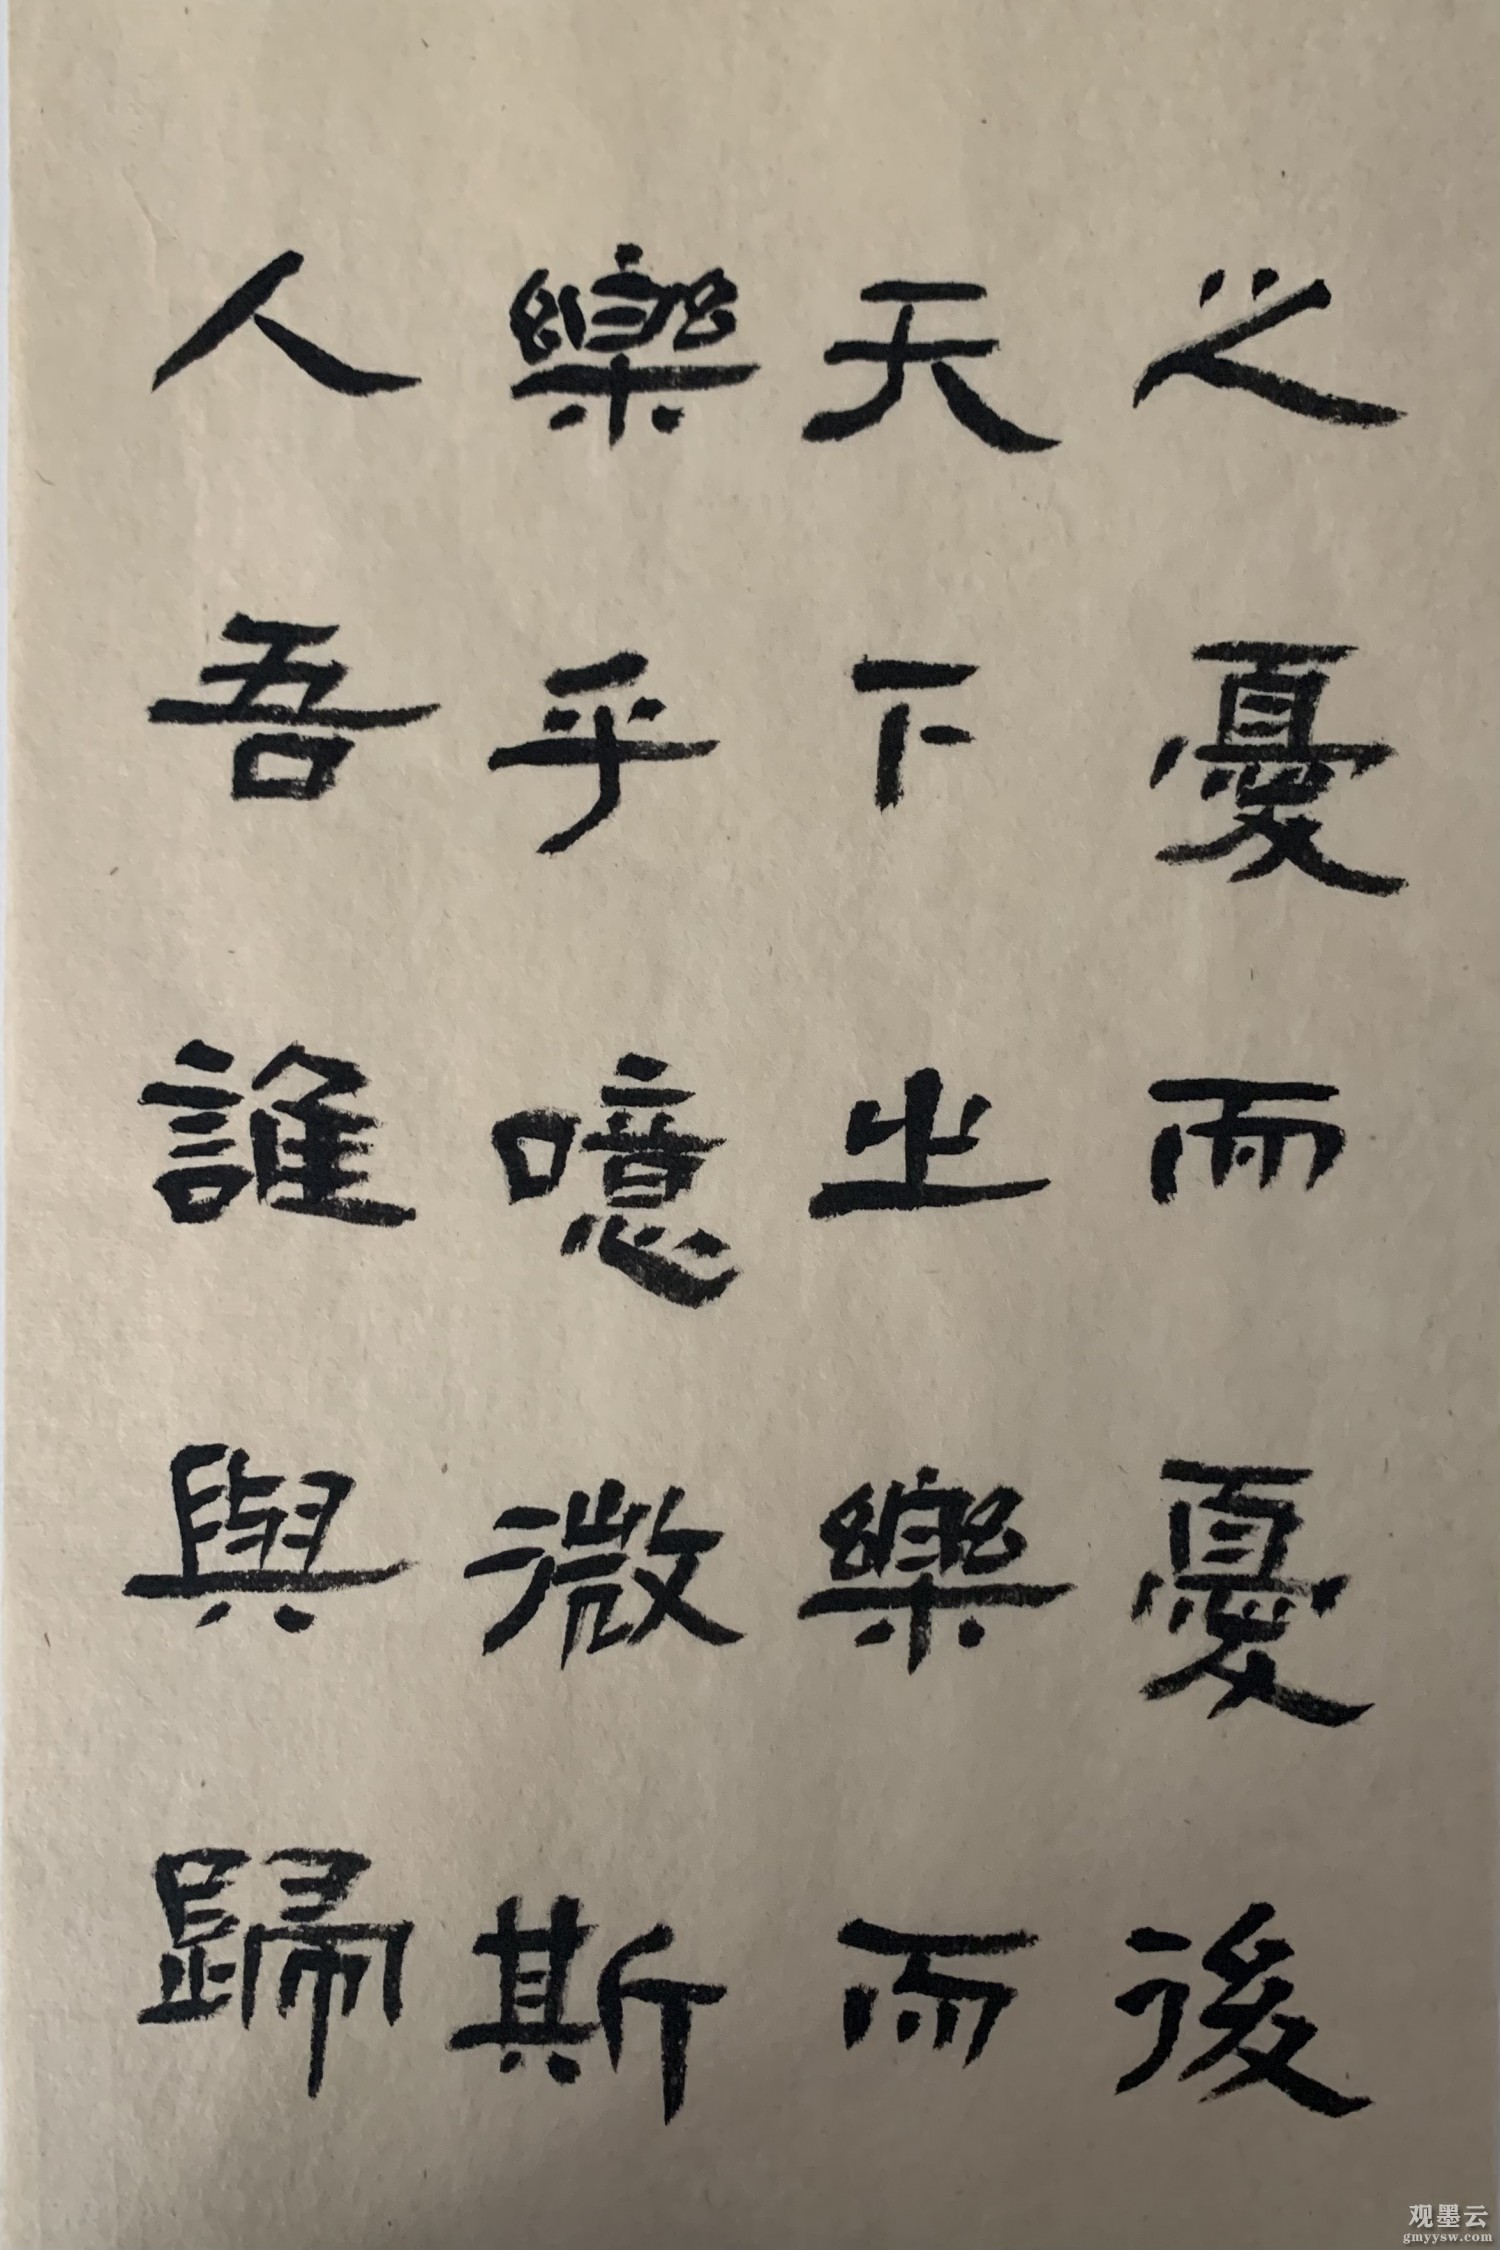 之憂而憂後
天下之樂而
樂乎噫微斯
人吾誰與歸
观墨云
gmyysw.com